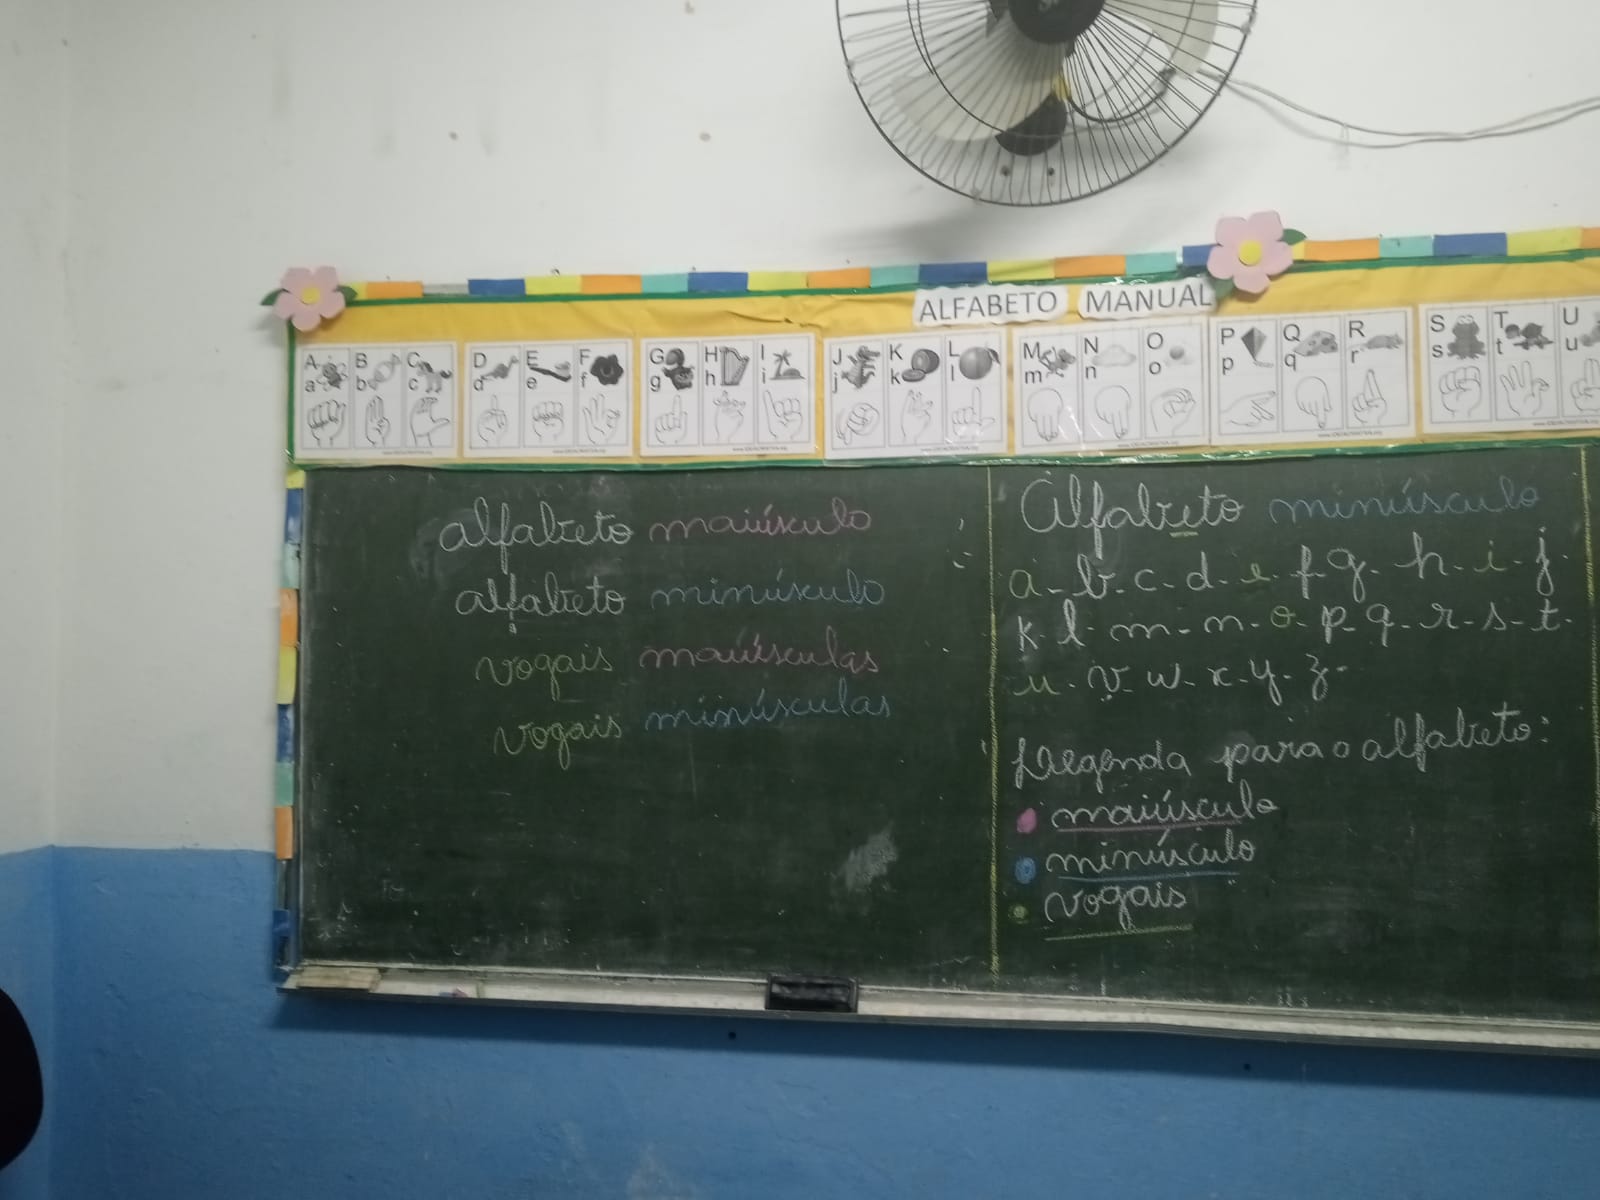 ALFABETO MANUAL
A B C D E F G H I J K L M N O P Q R S T U
a b c d e f g h i j k l m n o p q r s t u
alfabeto maiúsculo
alfabeto minúsculo
vogais maiúsculas
vogais minúsculas
Alfabeto minúsculo
a - b - c - d - e - f - g - h - i - j -
k - l - m - n - o - p - q - r - s - t -
u - v - w - x - y - z -
Legenda para o alfabeto:
maiúsculo
minúsculo
vogais